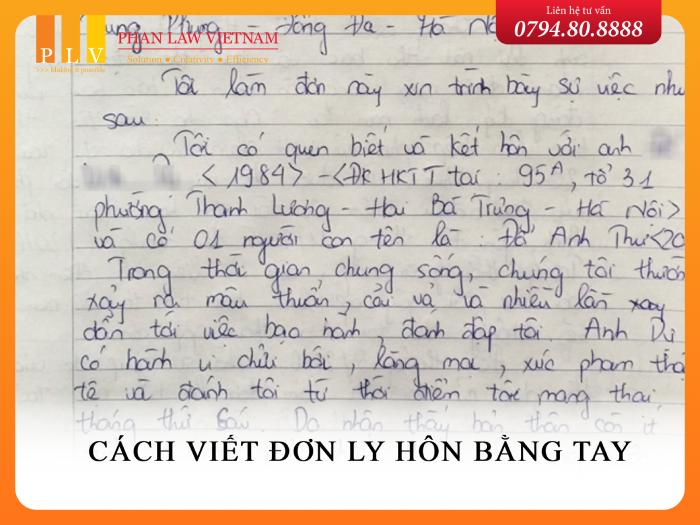 Liên hệ tư vấn
0794.80.8888
PLV
>>> Making it possible
PHAN LAW VIETNAM
Solution ● Creativity ● Efficiency
Phụng - Đống Đa - Hà Nộ
Tôi làm đơn này xin trình bày sự việc như
sau:
Tôi có quen biết và kết hôn với anh
<1984> - <ĐK HKTT tại : 95A, tổ 31
phường Thanh Lương - Hai Bà Trưng - Hà Nội>
và có 01 người con tên là : Đỗ Anh Thư <20
Trong thời gian chung sống, chúng tôi thườn
xảy ra mâu thuẫn, cãi vã và nhiều lần xảy
dẫn tới việc bạo hành, đánh đập tôi Anh
có hành vi chửi bới, lăng mạ, xúc phạm thậ
tệ và đánh tôi từ thời điểm tôi mang thai
tháng thứ sáu. Do nhận thấy bản thân còn ít
CÁCH VIẾT ĐƠN LY HÔN BẰNG TAY